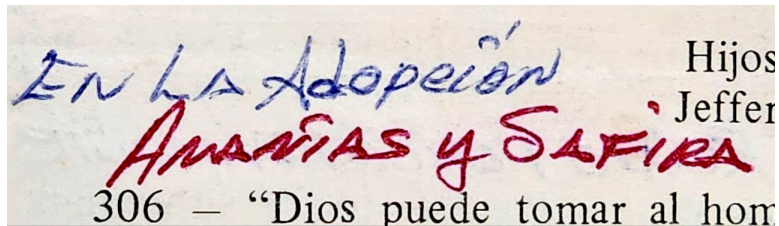 En LA Adopción
Hijos
Jeffer
Ananías y Safira
306 – “Dios puede tomar al hom